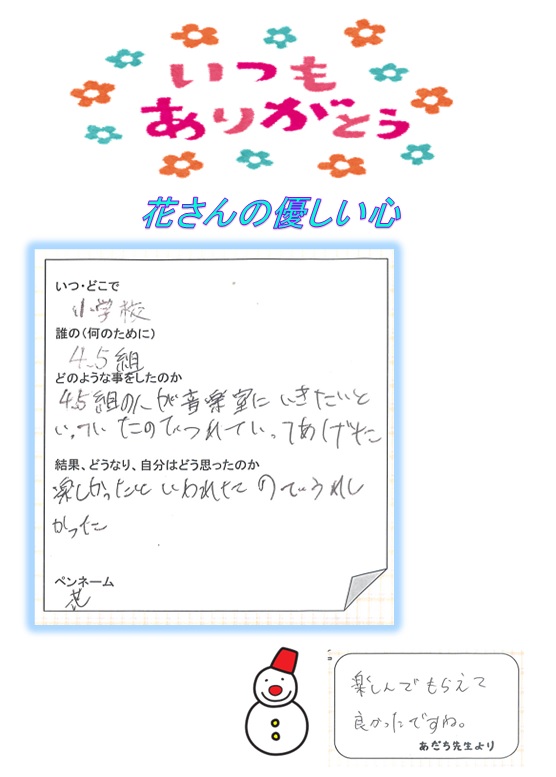 いつも
ありがとう
花さんの優しい心
いつ・どこで
小学校
誰の(何のために)
4.5組
どのような事をしたのか
4.5組の人が音楽室にいきたいと
いっていたのでつれていってあげた
結果、どうなり、自分はどう思ったのか
楽しかったといわれたのでうれし
かった
ペンネーム
花
楽しんでもらえて
良かったですね。
あだち先生より